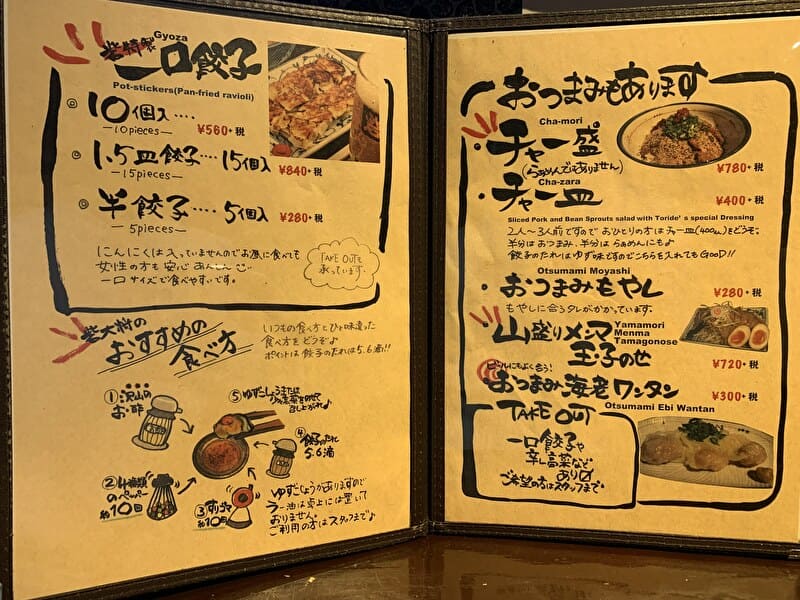 Gyoza
岩特製
一口餃子
Pot-stickers(Pan-fried ravioli)
10個入....
—10pieces—
¥560+税
1.5皿餃子....15個入
—15pieces—
¥840+税
半餃子....5個入
—5pieces—
¥280+税
にんにくは入っていませんのでお昼に食べても
女性の方も安心
一口サイズで食べやすいです。
TAKE OUTも
承っています。
岩大将の
おすすめの
食べ方
いつもの食べ方とひと味違った
食べ方をどうぞ♪
ポイントは餃子のたれは5.6滴!!
①沢山の
お酢
②4種類
のペッパー
約10回
③すりゴマ
約10回
④餃子のたれ
5.6滴
⑤ゆずこしょうまたは
召し上がれ♪
ゆずこしょうがありますので
ラー油は卓上には置いて
おりません。
ご利用の方はスタッフまで♪
おつまみもあります
Cha-mori
チャー盛
(らぁめんではありません)
¥780+税
Cha-zara
チャー皿
¥400+税
Sliced Pork and Bean Sprouts salad with Toride's special Dressing
2人〜3人前ですのでおひとりの方はチャー皿(400円)をどうぞ。
半分はおつまみ、半分はらぁめんにも♪
餃子のたれはゆず味ですのでこちらを入れてもGOOD!!
Otsumami Moyashi
おつまみもやし
¥280+税
もやしに合うタレがかかっています。
山盛りメンマ
玉子のせ
Yamamori
Menma
Tamagonose
¥720+税
ビールにもよく合う!
おつまみ海老ワンタン
¥300+税
Otsumami Ebi Wantan
TAKE OUT
一口餃子や
辛し高菜など
あり〼
ご希望の方はスタッフまで。